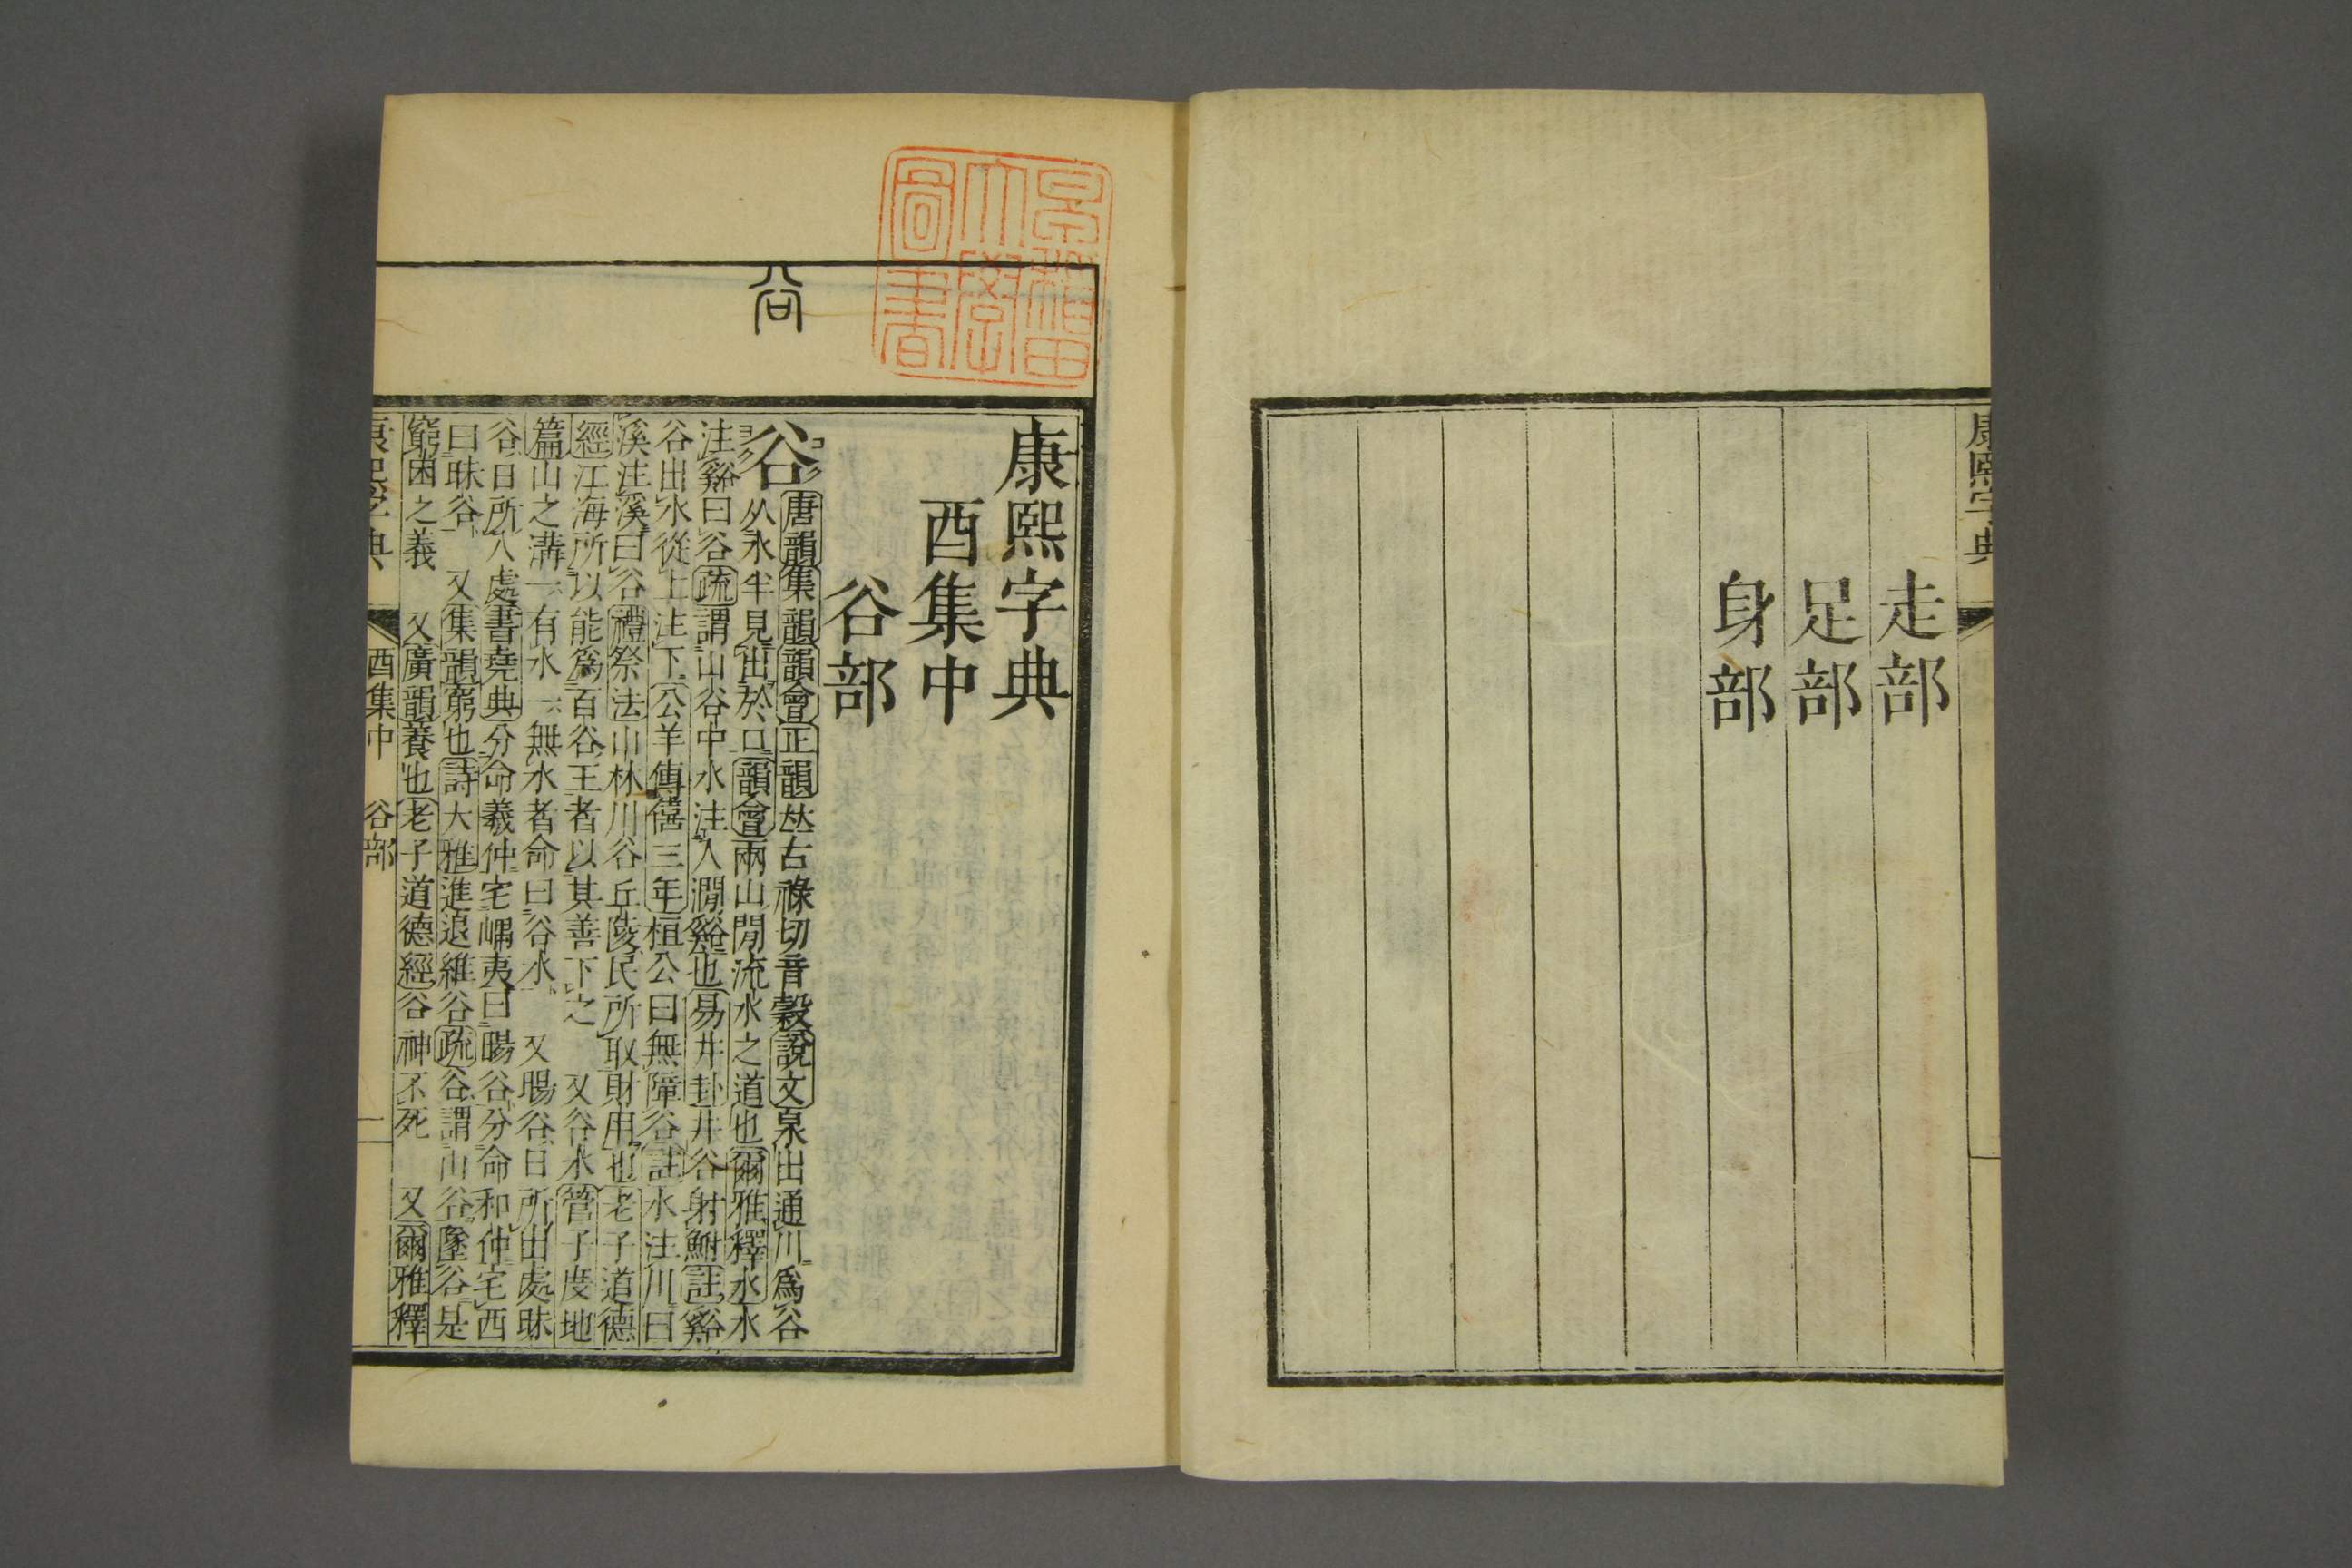 康熙字典
走部
足部
身部
早稲田
大學
圖書
谷
康熙字典
酉集中
谷部
谷
コク
ヨク
唐韻集韻韻會正韻𠀤古祿切音穀說文泉出通川爲谷
从水半見出於口韻會兩山閒流水之道也爾雅釋水水
注谿曰谷疏謂山谷中水注入澗谿也易井卦井谷射鮒註谿
谷出水從上注下公羊傳僖三年桓公曰無障谷註水注川曰
溪注溪曰谷禮祭法山林川谷丘陵民所取財用也老子道德
經江海所以能爲百谷王者以其善下之　又谷水管子度地
篇山之溝一有水一無水者命曰谷水　又暘谷日所出處昧
谷日所入處書堯典分命羲仲宅嵎夷曰暘谷分命和仲宅西
曰昧谷　又集韻窮也詩大雅進退維谷疏谷謂山谷墜谷是
窮困之義　又廣韻養也老子道德經谷神不死　又爾雅釋
康熙字典　酉集中　谷部　一